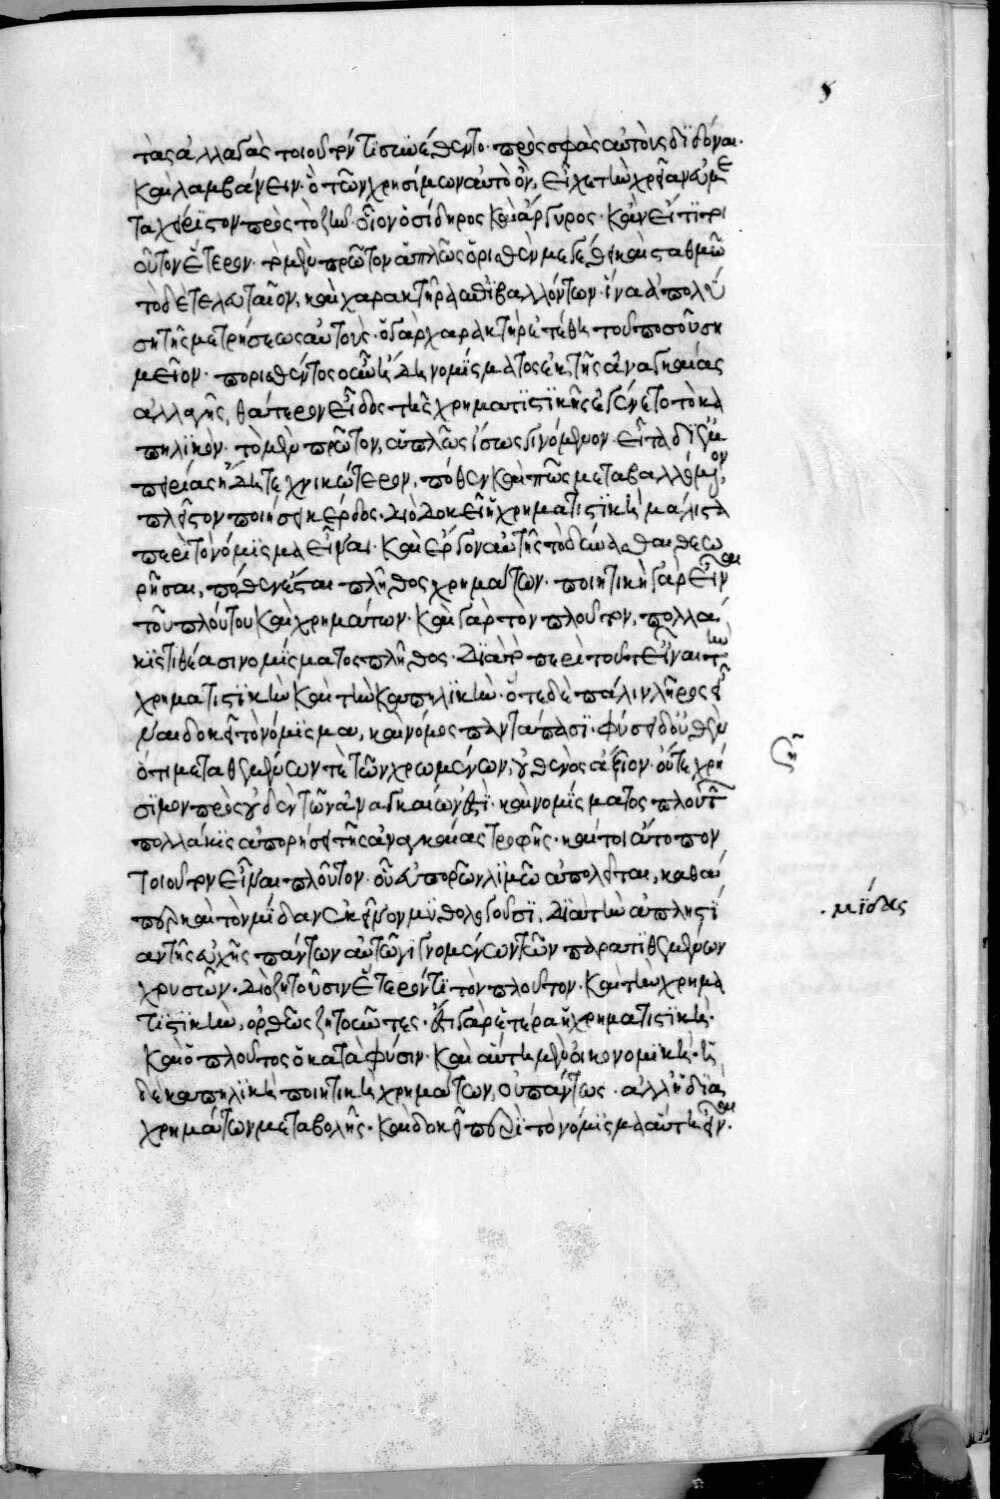 τὰς ἀλλαγὰς τοιοῦτόν τι συνέθεντο πρὸς σφᾶς αὐτοὺς διδόναι·
καὶ λαμβάνειν· ὃ τῶν χρησίμων αὐτὸ ὂν, εἶχε τὴν χρείαν εὐμε
ταχείριστον πρὸς τὸ ζῆν· οἷον ὁ σίδηρος καὶ ἄργυρος· κἂν εἴ τι τοι
οῦτον ἕτερον· τὸ μὲν πρῶτον ἁπλῶς ὁρισθὲν μεγέθει καὶ σταθμῶ
τὸ δὲ τελευταῖον, καὶ χαρακτῆρα ἐπιβαλλόντων· ἵνα ἀπολύ
ση τῆς μετρήσεως αὐτούς· ὁ γὰρ χαρακτὴρ ἐτέθη τοῦ ποσοῦ ση
μεῖον· πορισθέντος οὖν ἤδη νομίσματος ἐκ τῆς ἀναγκαίας
ἀλλαγῆς, θάτερον εἶδος τῆς χρηματιστικῆς ἐγένετο τὸ κα
πηλικόν· τὸ μὲν πρῶτον, ἁπλῶς ἴσως γινόμενον· εἶτα δι' ἐμ
πειρίας ἤδη τεχνικώτερον, πόθεν καὶ πῶς μεταβαλλόμενον,
πλεῖστον ποιήσει κέρδος· διὸ δοκεῖ ἡ χρηματιστικὴ μάλιστα
περὶ τὸ νόμισμα εἶναι· καὶ ἔργον αὐτῆς τὸ δύνασθαι θεω
ρῆσαι, πόθεν ἔσται πλῆθος χρημάτων· ποιητικὴ γὰρ εἶναι
τοῦ πλούτου καὶ χρημάτων· καὶ γὰρ τὸν πλοῦτον, πολλά
κις τιθέασι νομίσματος πλῆθος· διὰ τὸ περὶ τοῦτ' εἶναι τὴν
χρηματιστικὴν καὶ τὴν καπηλικήν· ὁτὲ δὲ πάλιν λῆρος εἶ
ναι δοκεῖ τὸ νόμισμα, καὶ νόμος παντάπασι· φύσει δ' οὐθὲν
ὅτι μεταθεμένων τε τῶν χρωμένων, οὐθενὸς ἄξιον· οὔτε χρή
σιμον πρὸς οὐδὲν τῶν ἀναγκαίων ἐστί· καὶ νομίσματος πλουτῶν
πολλάκις ἀπορήσει τῆς ἀναγκαίας τροφῆς· καίτοι ἄτοπον
τοιοῦτον εἶναι πλοῦτον· οὗ εὐπορῶν λιμῶ ἀπολεῖται, καθά
περ καὶ τὸν μίδαν ἐκεῖνον μυθολογοῦσι, διὰ τὴν ἀπληστί
αν τῆς εὐχῆς πάντων αὐτῶ γιγνομένων τῶν παρατιθεμένων
χρυσῶν· διὸ ζητοῦσιν ἕτερόν τι τὸν πλοῦτον· καὶ τὴν χρημα
τιστικὴν, ὀρθῶς ζητοῦντες· ἔστι γὰρ ἑτέρα ἡ χρηματιστικὴ·
καὶ ὁ πλοῦτος ὁ κατὰ φύσιν· καὶ αὕτη μὲν οἰκονομικὴ· ἡ
δὲ καπηλικὴ ποιητικὴ χρημάτων, οὐ πάντως· ἀλλ' ἢ διὰ
χρημάτων μεταβολῆς· καὶ δοκεῖ περὶ τὸ νόμισμα αὕτη εἶναι·
μίδας